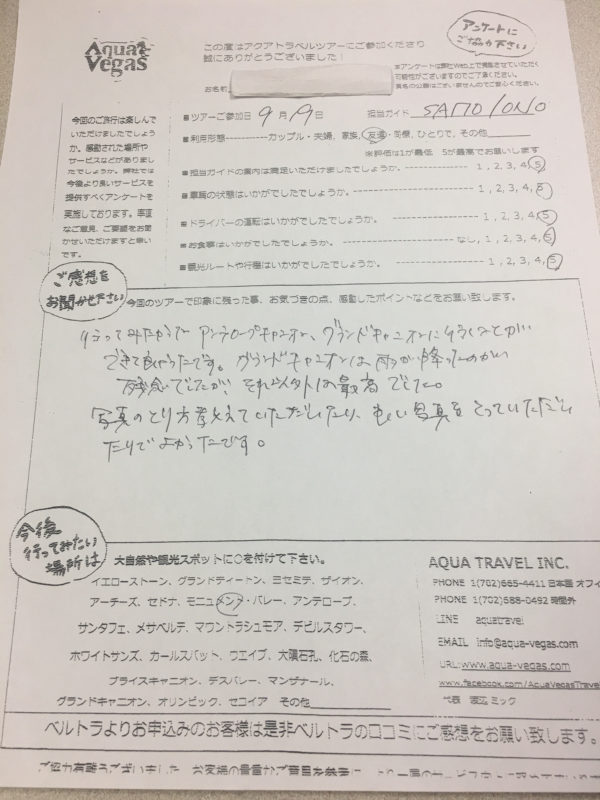 Aqua Vegas
この度はアクアトラベルツアーにご参加くださり
誠にありがとうございました！
アンケートに
ご協力下さい
本アンケートは弊社Web上で掲載させていただく
可能性がございますのでご了承ください。
実名の公開はございませんのでご安心ください。
お名前
今回のご旅行は楽しんで
いただけましたでしょう
か。感動された場所や
サービスなどがありまし
たでしょうか。弊社では
今後より良いサービスを
提供すべくアンケートを
実施しております。率直
なご意見、ご要望をお聞
かせいただけますと幸い
です。
■ツアーご参加日 9月19日 担当ガイド SAITO/ONO
■利用形態-----------カップル・夫婦、家族、友達・同僚、ひとりで、その他
※評価は1が最低 5が最高でお願いします
■担当ガイドの案内は満足いただけましたでしょうか。---------------- 1, 2, 3, 4, 5
■車両の状態はいかがでしたでしょうか。---------------- 1, 2, 3, 4, 5
■ドライバーの運転はいかがでしたでしょうか。---------------- 1, 2, 3, 4, 5
■お食事はいかがでしたでしょうか。---------------- なし, 1, 2, 3, 4, 5
■観光ルートや行程はいかがでしたでしょうか。---------------- 1, 2, 3, 4, 5
ご感想を
お聞かせ下さい
今回のツアーで印象に残った事、お気づきの点、感動したポイントなどをお願い致します。
行ってみたかった アンテロープキャニオン、グランドキャニオンに行くことが
できて良かったです。グランドキャニオンは雨が降ったのがい
残念でしたが、それ以外は最高でした。
写真のとり方教えていただいたり、楽しい写真をとっていただい
たりでよかったです。
今後
行ってみたい
場所は
大自然や観光スポットに○を付けて下さい。
イエローストーン、グランドティートン、ヨセミテ、ザイオン、
アーチーズ、セドナ、モニュメント・バレー、アンテロープ、
サンタフェ、メサベルデ、マウントラシュモア、デビルスタワー、
ホワイトサンズ、カールスバット、ウエイブ、大隕石孔、化石の森、
ブライスキャニオン、デスバレー、マンザナール、
グランドキャニオン、オリンピック、セコイア その他
AQUA TRAVEL INC.
PHONE 1(702)665-4411 日本語 オフィ
PHONE 1(702)688-0492 時間外
LINE aquatravel
EMAIL info@aqua-vegas.com
URL:www.aqua-vegas.com
www.facebook.com/AquaVegasTravel
代表 渡辺 ミック
ベルトラよりお申込みのお客様は是非ベルトラの口コミにご感想をお願い致します。